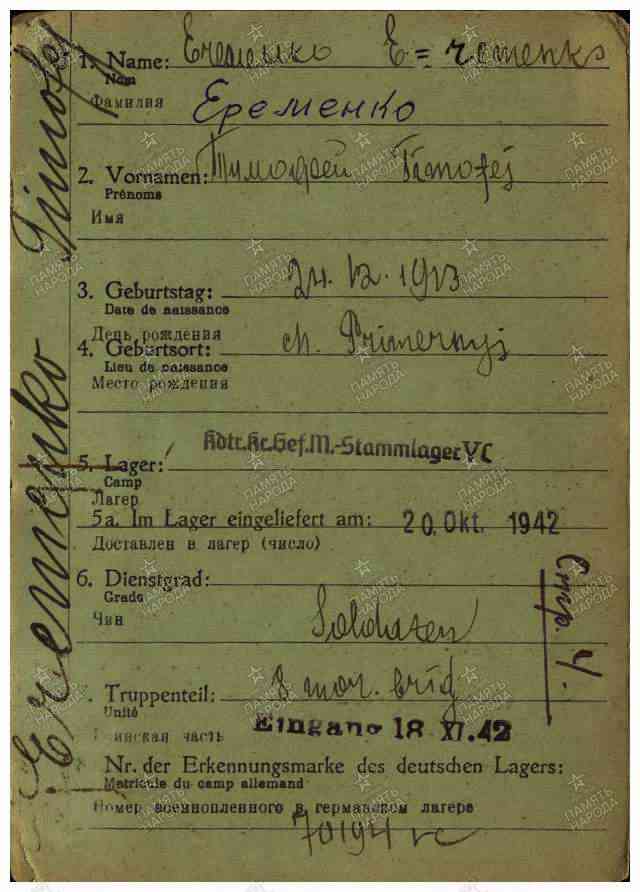 Eremenko Timofej
1. Name: Еременко E=remenko
Nom
Фамилия Еременко
2. Vornamen: Тимофей Timofej
Prénoms
Имя
3. Geburtstag: 24. 12. 1913
Date de naissance
День рождения
4. Geburtsort: ch. Primernyj
Lieu de naissance
Место рождения
5. Lager: Kdtr. Kr.Gef.M.-Stammlager VC
Camp
Лагер
5a. Im Lager eingeliefert am: 20. Okt. 1942
Доставлен в лагер (число)
6. Dienstgrad:
Grade
Чин Soldaten
Стр. 4.
Truppenteil: 8 mor. brig
Unité
инская часть Eingang 18 XI. 42
Nr. der Erkennungsmarke des deutschen Lagers:
Matricule du camp allemand
Номер военнопленного в германском лагере
70194 VC
ПАМЯТЬ НАРОДА